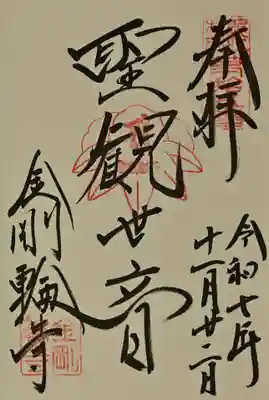 奉拝
令和七年
十一月廿二日
聖観世音
金剛輪寺
金剛